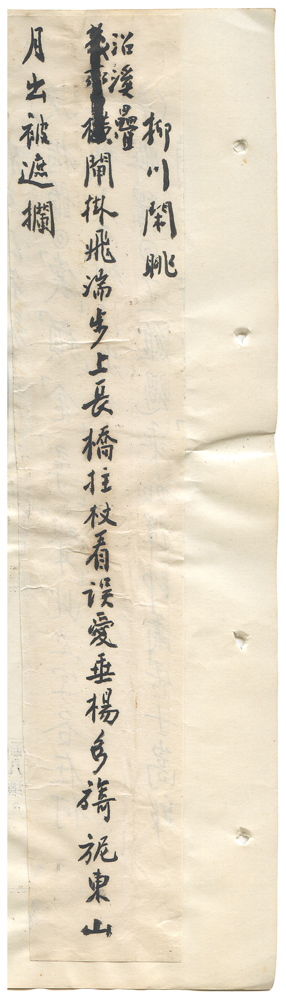 柳川閑眺
沿溪疊
閘掛飛湍步上長橋拄杖看誤愛垂楊多旖旎東山
月出被遮攔